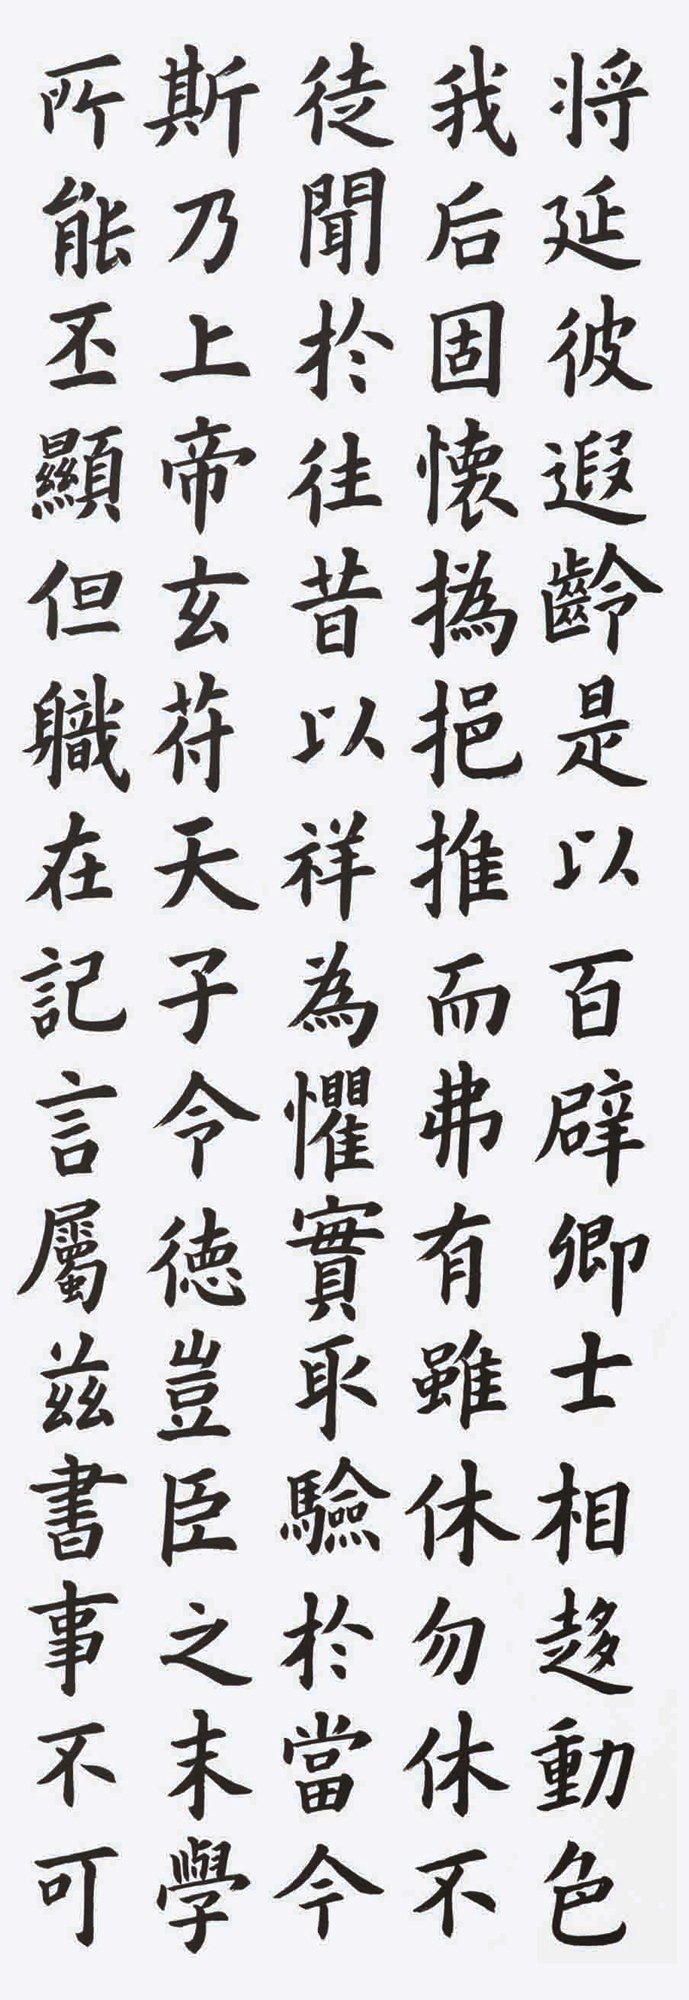 将延彼遐齡是以百辟卿士相趍動色
我后固懷撝挹推而弗有雖休勿休不
徒聞於往昔以祥為懼實取驗於當今
斯乃上帝玄苻天子令徳豈臣之末學
所能丕顯但職在記言屬茲書事不可